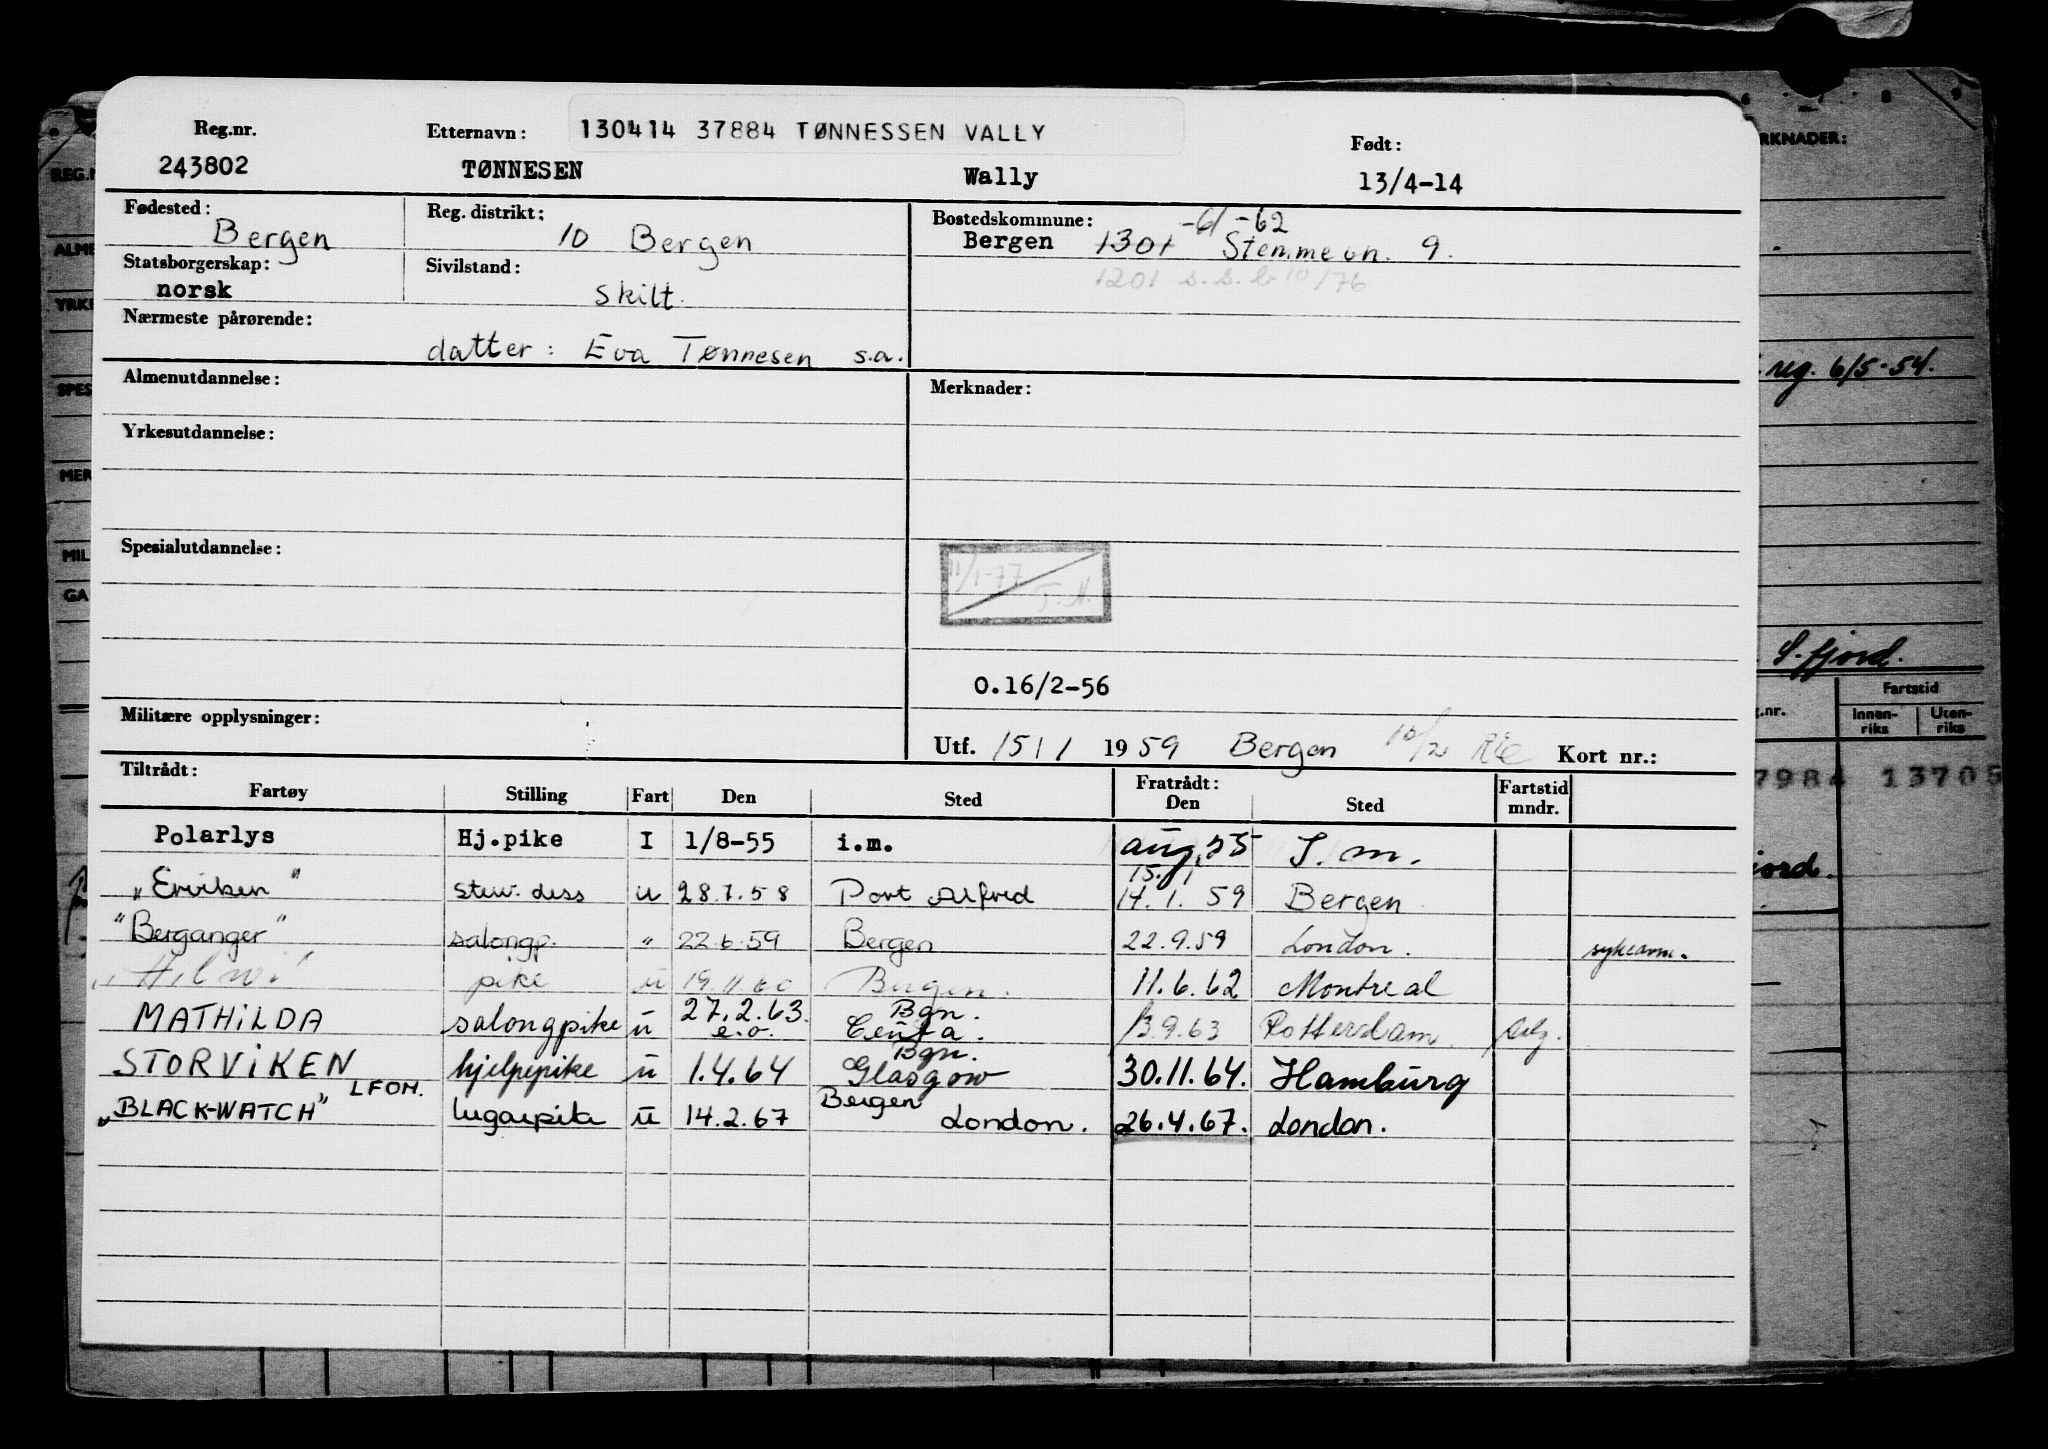 Reg.nr. Etternavn: 130414 37884 TØNNESSEN VALLY Født:
243802 TØNNESEN Wally 13/4-14
Fødested: Reg. distrikt: Bostedskommune: -6/ -62
Bergen 10 Bergen Bergen 1301 Stemmevn. 9.
Statsborgerskap: Sivilstand: 1201 s.s.b. 10/76
norsk Skilt.
Nærmeste pårørende:
datter: Eva Tønnesen s.a.
Almenutdannelse: Merknader:
Yrkesutdannelse:
Spesialutdannelse:
11/1-77 T.H.
0.16/2-56
Militære opplysninger:
Utf. 15/1 1959 Bergen 10/2 Kort nr.:
Tiltrådt: Fratrådt: Fartstid
Fartøy Stilling Fart Den Sted Den Sted mndr.
Polarlys Hj.pike I 1/8-55 i.m. aug. 55 I.m.
15.1
"Eriviken" stew. dess u 28.7.58 Port Alfred 14.1.59 Bergen
"Berganger" salongp. " 22.6.59 Bergen 22.9.59 London. sykeavm.
pike u 19.11.60 Bergen. 11.6.62 Montreal
27.2.63. Bgn.
MATHILDA salongpike u e.o. Ceuta. 13.9.63 Rotterdam.
Bgn.
STORVIKEN hjelpepike u 1.4.64 Glasgow 30.11.64. Hamburg
LFOM. Bergen
"BLACK-WATCH" lugarpike u 14.2.67 London. 26.4.67. London.
RKNADER:
reg. 6/5-54.
S.fjord.
Fartstid
g.nr. Innen-riks Uten-riks
7984 13705
jord.
REG.N
ALME
YRKE
SPES
MER
MIL
GA